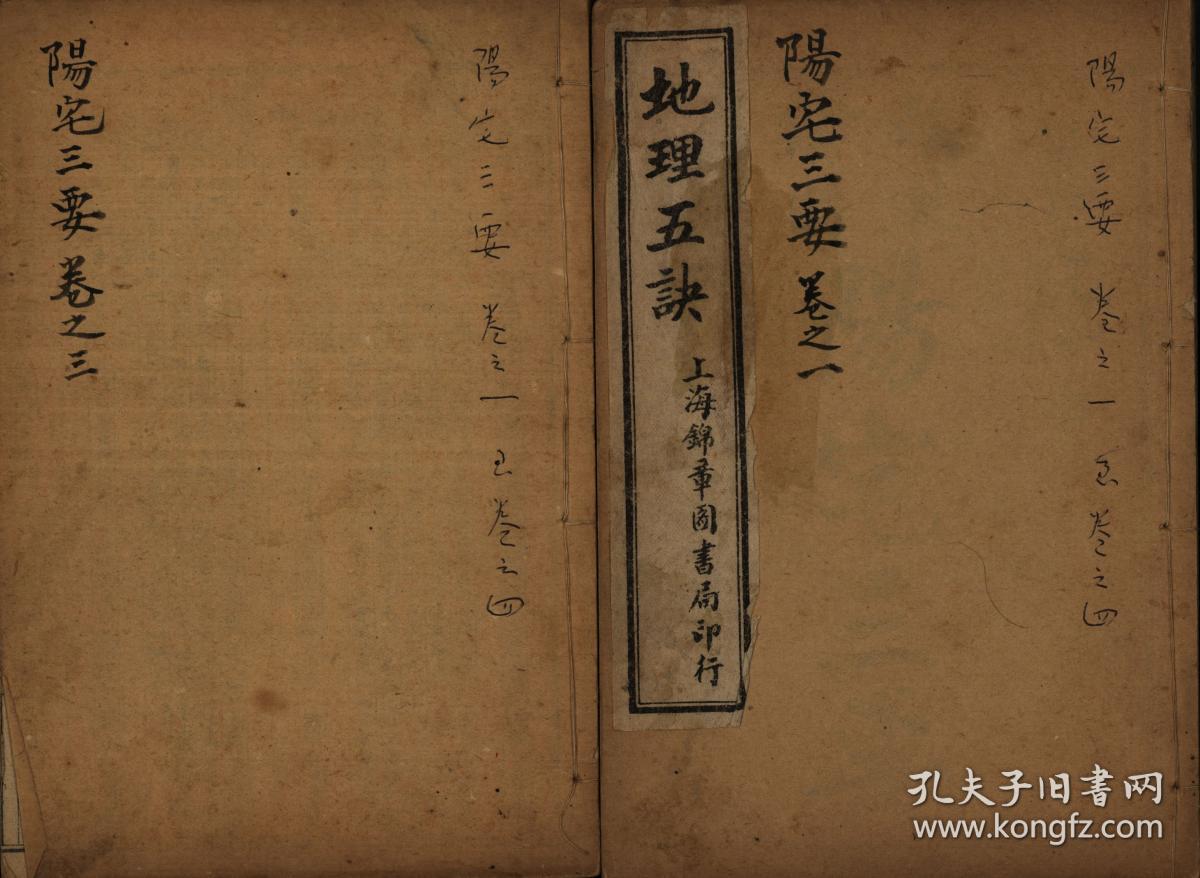 陽宅三要 卷之一
陽宅三要 卷之一 至卷之四
地理五訣
上海錦章圖書局印行
陽宅三要 卷之三
陽宅三要 卷之一 至卷之四
孔夫子旧书网
www.kongfz.com